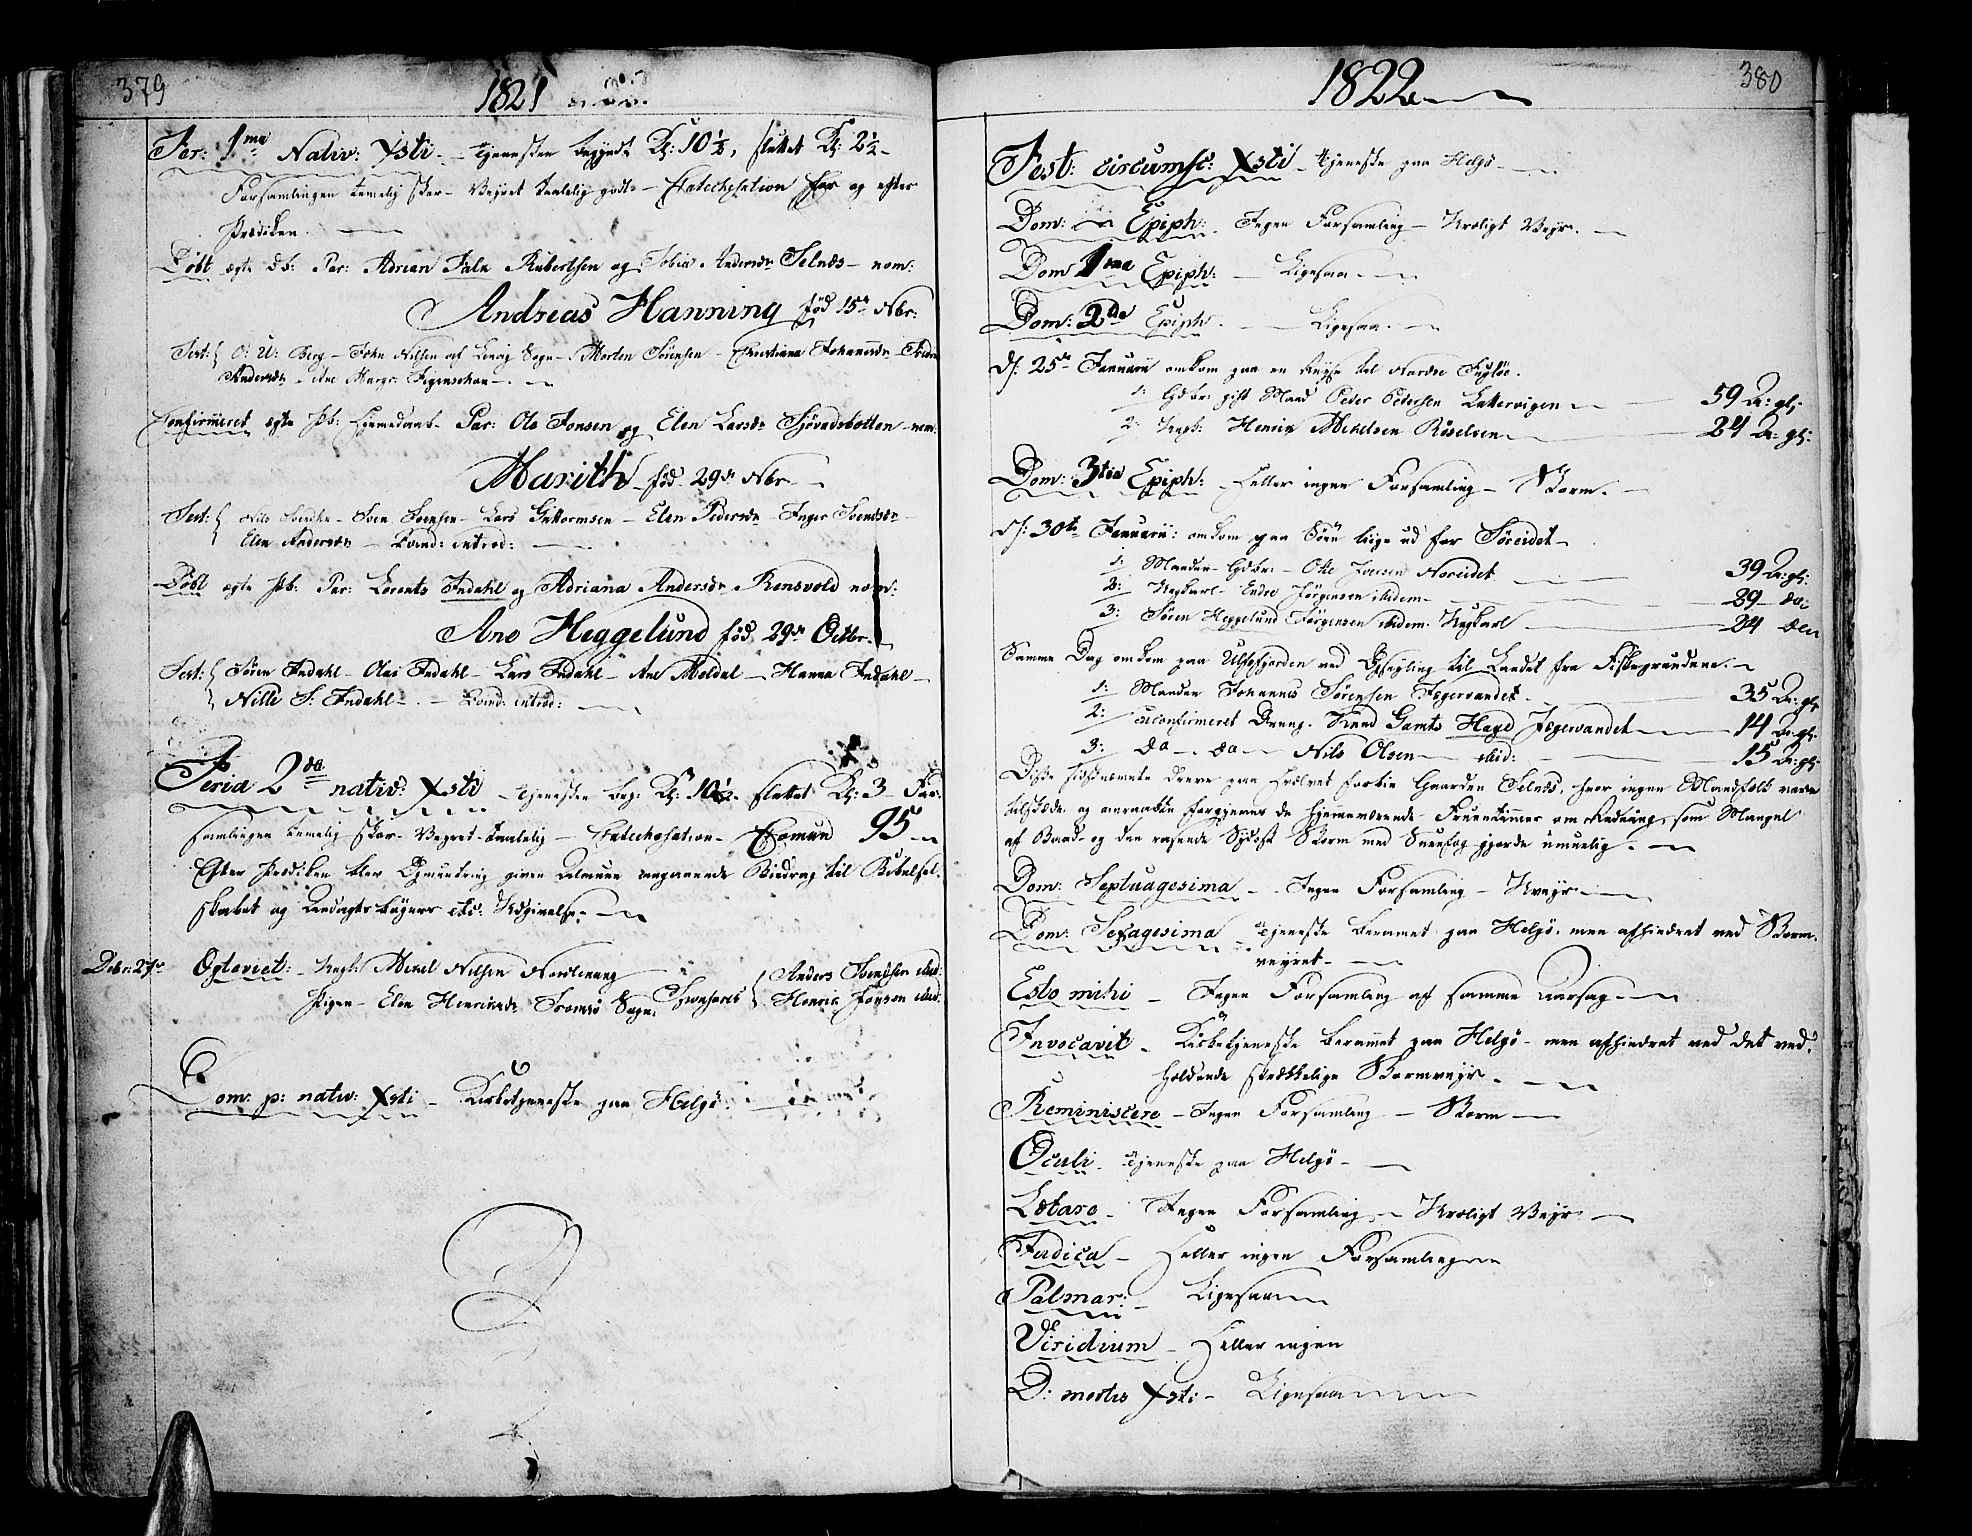 379
1821
Fer: 1ma Nativ: Xsti - Tjenesten begyndt Kl: 10½, sluttet Kl: 2½ -
Forsamlingen temelig stor - Veyret taalelig godt - Catechisation før og efter
Prædiken.
Døbt ægte db: Par: Adrian Falk Rubertsen og Tobia Andersdr Selnæs - nom:
Andreas Hanning fød 15de Nbr:
Test: { O: U: Berg - John Nilsen af Lenvig Sogn - Morten Sörensen - Christiana Johannesdr -
Andersdr - Ane Margr: Figenschau -
Confirmeret ægte Pb: Hjemedaab - Par: Ole Jonsen og Elen Larsdr Sjövadsbotten nom:
Marith - fød 29de Nbr -
Test: { Nils - Sven Svensen - Lars Guttormsen - Elen Pedersdr - Inger Svendsdr -
Elen Andersdr - Qvind: introd: -
Døbt ægte Pb: Par: Lorents Indahl og Adriana Andersdr Rensvold nom:
Ane Heggelund fød 29de Octbr -
Test: { Sören Indahl - Olai Indahl - Lars Indahl - Ane Moldal - Hanna Indahl -
Nille S: Indahl - Qvind: introd: -
Feria 2da nativ: Xsti - Tjenesten beg: Kl: 10½ - sluttet Kl: 3 - For-
samlingen temelig stor - Veyret taalelig - Catechisation - Comun 95 -
Efter Prædiken blev Opmuntring given Almuen angaaende Bidrag til Bibelsel-
skabet og Andagtsbøgers etc: Udgivelse -
Debr: 27de Ogtaviet: - Ungk: Mikel Nilsen Nordlenang
Pigen - Elen Henriksdr Tromsø Sogn. Sponsores { Anders ibid:
Henrik ibid:
Dom: p: nativ: Xsti - Kirketjeneste paa Helgö -
380
1822
Fest: circumsc: Xsti - Tjeneste paa Helgö -
Dom: Epiph: Ingen Forsamling - Uroligt Veyr -
Dom 1ma Epiph: - Ligesaa -
Dom: 2da Epiph. - Ligesaa. -
d: 25de Januarii omkom paa en Reyse til Nordre Fuglöe.
1: Gdbr: gift Mand Peder Pedersen Lattervigen - 59 Ar: gl:
2: Ungk: Henrik Mikelsen - 24 Ar: gl:
Dom: 3tia Epiph: - Heller ingen Forsamling - Storm. -
d: 30te Januarii: omkom paa Söen lige ud for Söreidet -
1: Manden - Gdbr: - Otte Noreidet - 39 Ar: gl:
2: Ungkarl - Endre Jörgensen ibidem - 29 do:
3: Sören Heggelund Jörgensen ibidem Ungkarl - 24 do:
Samme Dag omkom paa Ulfsfjorden ved Opseyling til Landet fra Fiskegrundene. -
1: Manden Johannes Sörensen Jægervandet - 35 Ar: gl:
2: Uconfirmeret Dreng. Knud Gamts Hage Jægervandet - 14 Ar: gl:
3: do - do - Nils Olsen - ibid: - 15 Ar: gl:
Disse sidstnævnte dreve paa Hvælvet forbie Gaarden Selnæs, hvor ingen Mandfolk vare
tilstæde, og anraabte forgjeves de hjemmeværende Fruentimmer om Redning, som Mangel
af Baad - og den rasende Sydost Storm med Sneefog gjorde umuelig. -
Dom: Septuagesima - Ingen Forsamling - Uveyr -
Dom: Sexagesima - Tjeneste berammet paa Helgö. men afhindret ved Storm-
veyret -
Esto mihi - Ingen Forsamling af samme Aarsag -
Invocavit - Kirketjeneste berammet paa Helgö - men afhindret ved det ved-
holdende skrækkelige Stormveyr. -
Reminiscere - Ingen Forsamling - Storm -
Oculi - Tjeneste paa Helgö -
Lætare - Ingen Forsamling - Uroligt Veyr -
Judica - Heller ingen Forsamling
Palmar: - Ligesaa
Viridium - Heller ingen
D: mortis Xsti - Ligesaa